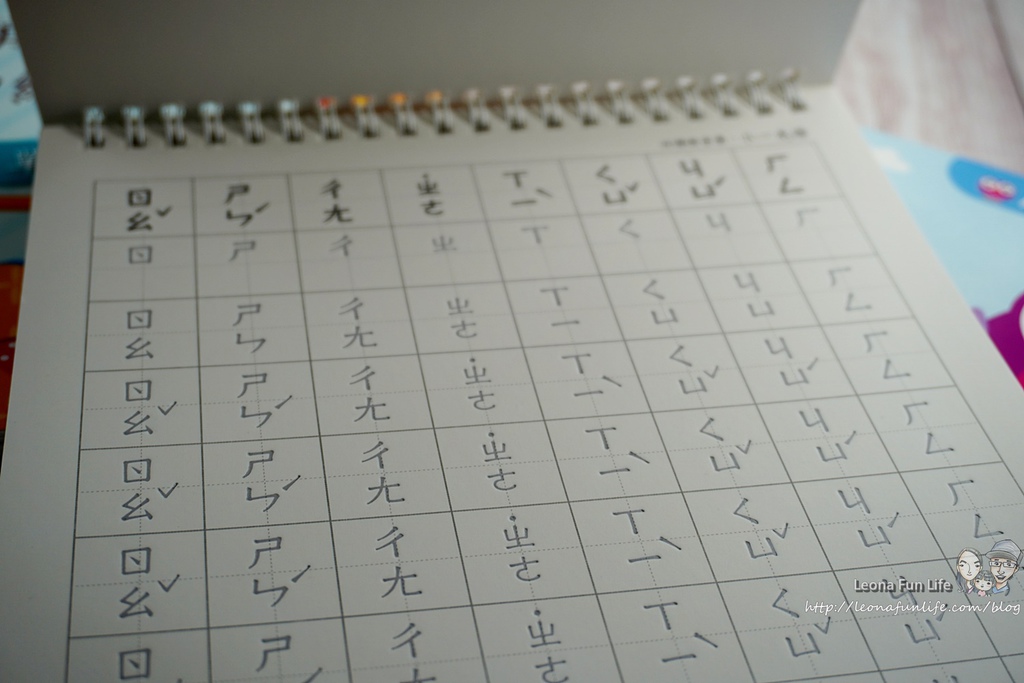 ㄖㄠˇ ㄕㄣˊ ㄔㄤ ˙ㄓㄜ ㄒㄧˋ ㄑㄩˇ ㄐㄩˊ ㄏㄥ
ㄖ ㄕ ㄔ ㄓ ㄒ ㄑ ㄐ ㄏ
ㄖㄠ ㄕㄣ ㄔㄤ ㄓㄜ ㄒㄧ ㄑㄩ ㄐㄩ ㄏㄥ
ㄖㄠˇ ㄕㄣˊ ㄔㄤ ˙ㄓㄜ ㄒㄧˋ ㄑㄩˇ ㄐㄩˊ ㄏㄥ
ㄖㄠˇ ㄕㄣˊ ㄔㄤ ˙ㄓㄜ ㄒㄧˋ ㄑㄩˇ ㄐㄩˊ ㄏㄥ
ㄖㄠˇ ㄕㄣˊ ㄔㄤ ˙ㄓㄜ ㄒㄧˋ ㄑㄩˇ ㄐㄩˊ ㄏㄥ
ㄖ ㄕ ㄔㄤ ˙ㄓㄜ ㄒㄧˋ ㄑㄩˇ ㄐㄩˊ
Leona Fun Life
http://leonafunlife.com/blog